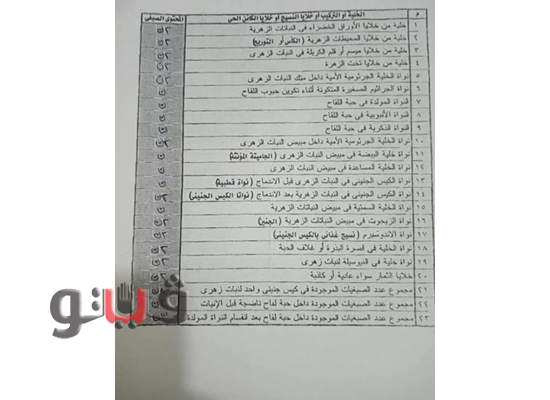 م الخلية أو التركيب أو خلايا النسيج أو خلايا الكائن الحى المحتوى الصبغى
١ خلية من خلايا الأوراق الخضراء فى النباتات الزهرية
٢ خلية من خلايا المحيطات الزهرية (الكأس أو التويج)
٣ خلية من خلايا ميسم أو قلم الكربلة فى النبات الزهرى
٤ خلية من خلايا تخت الزهرة
٥ نواة الخلية الجرثومية الأمية داخل متك النبات الزهرى
٦ نواة الجراثيم الصغيرة المتكونة أثناء تكوين حبوب اللقاح
٧ النواة المولدة فى حبة اللقاح
٨ النواة الأنبوبية فى حبة اللقاح
٩ النواة الذكرية فى حبة اللقاح
١٠ نواة الخلية الجرثومية الأمية داخل مبيض النبات الزهرى
١١ نواة خلية البيضة فى مبيض النبات الزهرى (الجاميتة المؤنثة)
١٢ نواة الخلية المساعدة فى مبيض النبات الزهرى
١٣ نواة الكيس الجنينى فى النبات الزهرى قبل الاندماج (نواة قطبية)
١٤ نواة الكيس الجنينى فى النبات الزهرية بعد الاندماج (نواتا الكيس الجنينى)
١٥ نواة الخلية السمتية فى مبيض النباتات الزهرية
١٦ نواة الزيجوت فى مبيض النباتات الزهرية (الجنين)
١٧ نواة الاندوسبرم (نسيج غذائى بالكيس الجنينى)
١٨ نواة الخلية فى قصرة البذرة أو غلاف الحبة
١٩ نواة خلية فى النيوسيلة لنبات زهرى
٢٠ خلايا الثمار سواء عادية أو كاذبة
٢١ مجموع عدد الصبغيات الموجودة فى كيس جنينى واحد لنبات زهرى
٢٢ مجموع عدد الصبغيات الموجودة داخل حبة لقاح ناضجة قبل الإنبات
٢٣ مجموع عدد الصبغيات الموجودة داخل حبة لقاح بعد انقسام النواة المولدة
ڤيتو